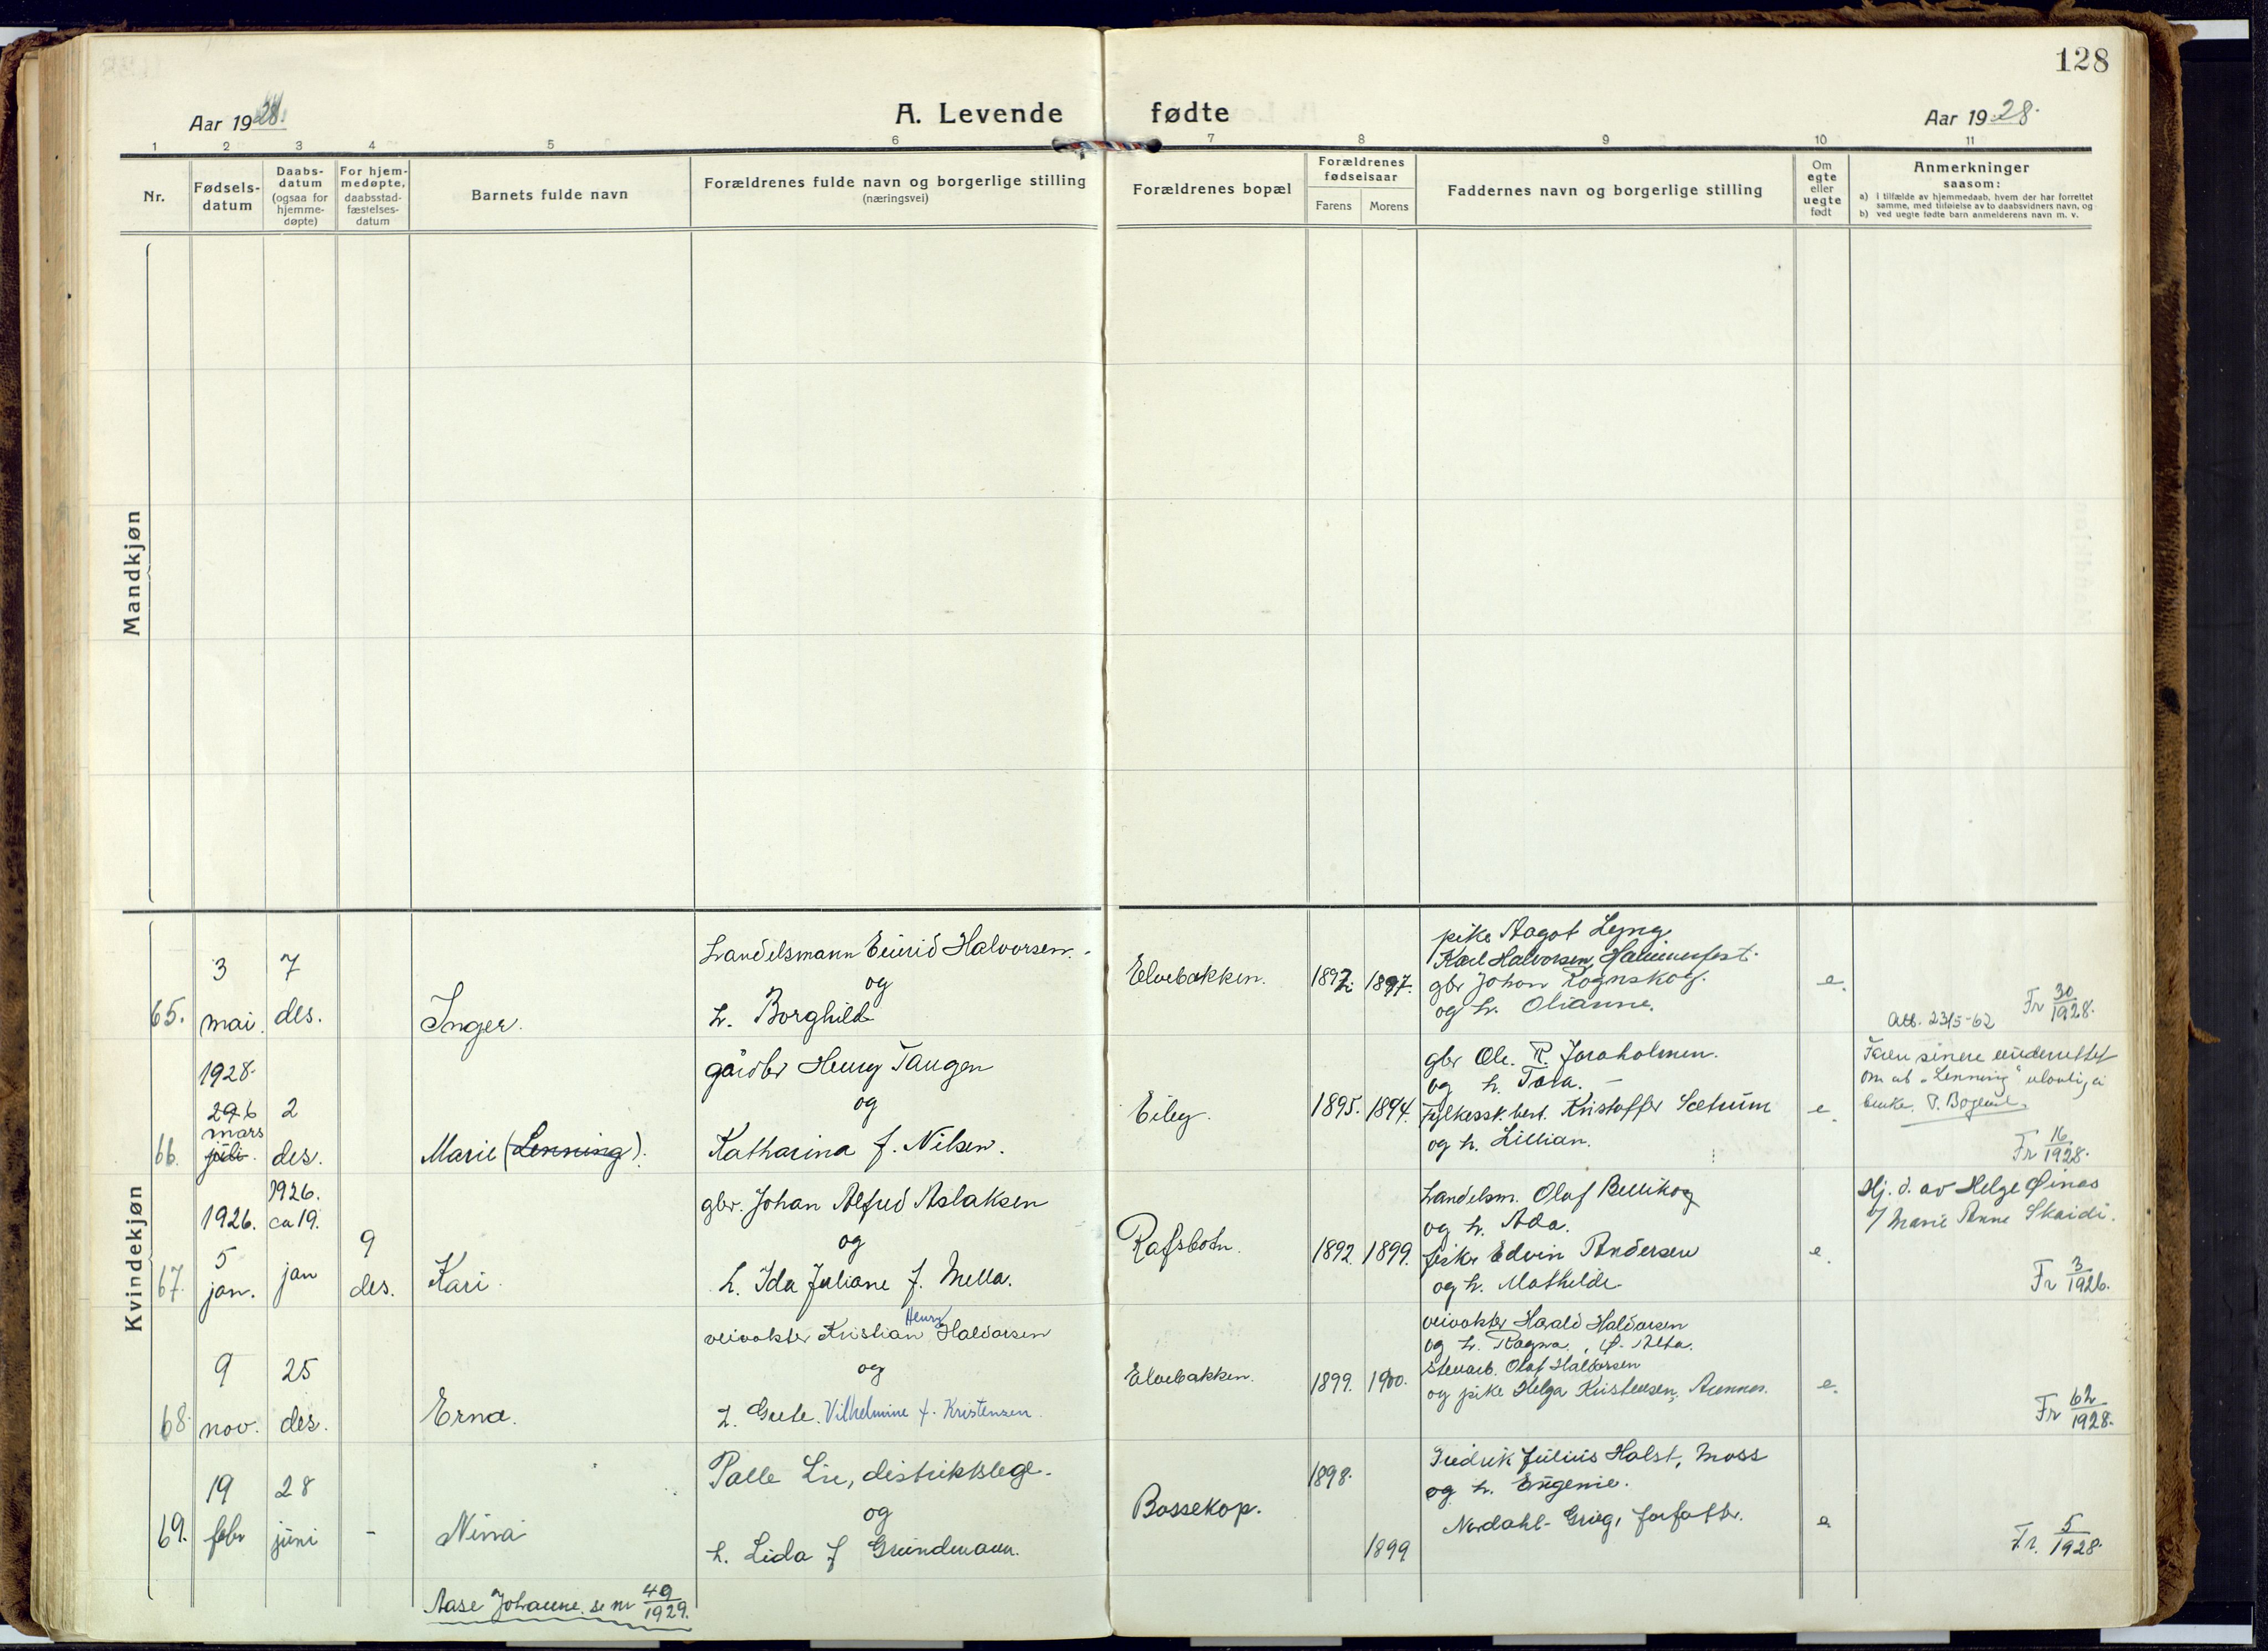 128
Aar 1928.
A. Levende fødte
Aar 1928.
1 2 3 4 5 6 7 8 9 10 11
Nr.
Fødsels-
datum
Daabs-
datum
(ogsaa for
hjemme-
døpte)
For hjem-
medøpte,
daabsstad-
fæstelses-
datum
Barnets fulde navn
Forældrenes fulde navn og borgerlige stilling
(næringsvei)
Forældrenes bopæl
Forældrenes
fødselsaar
Farens Morens
Faddernes navn og borgerlige stilling
Om
egte
eller
uegte
født
Anmerkninger
saasom:
a) i tilfælde av hjemmedaab, hvem der har forrettet
samme, med tilføielse av to daabsvidners navn, og
b) ved uegte fødte barn anmelderens navn m. v.
Mandkjøn
Kvindekjøn
65.
3
mai.
1928.
7
des.
Inger.
Handelsmann Halvorsen.
og
h. Borghild
Elvebakken.
1897.
pike Aagot Lyng
Karl Halvorsen, Hammerfest.
gbr Johan Rognskog.
og h. Olianne.
e.
Fr 30/1928.
Att. 23/5-62
66.
29 6
mars
juli.
1926.
2
des.
Marie (Lenning).
gårdbr Henry Taugen
og
Katharina f. Nilsen.
Eiby.
1895. 1894.
gbr Ole. R. Joraholmen.
og h. Tora.
fylkessk. best. Kristoffer Sætrum
og h. Lillian.
e.
om at "Lenning" ulovlig å
Fr 16/1928.
67.
5
jan.
1926.
ca 19.
jan
9
des.
Kari.
gbr. Johan Alfred Aslaksen
og
h. Ida Juliane f. Mella.
Rafsbotn.
1892. 1899.
Handelsm. Olaf
og h. Ada.
fisker Edvin Andersen
og h. Mathilde
e.
Hj. d. av Helge Øinas
/ Marie Anne Skaidi.
Fr 3/1926.
68
9
nov.
25
des.
Erna.
veivokter Kristian Henry Haldorsen
og
h. Grete. Vilhelmine f. Kristensen.
Elvebakken.
1899. 1900.
veivokter Harald Haldorsen
og h. Ragna, Ø. Alta.
Olaf Haldorsen
og pike Helga Kristensen,
e.
Fr 62/1928.
69.
19
febr
28
juni
-
Nina
Palle Lie, distriktslege.
og
h. Lida f Gründmann.
Bossekop.
1898.
1899
Fredrik Julius Holst, Moss
og h. Eugenie.
Nordahl-Grieg, forfatter.
e
Fr. 5/1928.
Aase Johanne. se nr 49/1929.